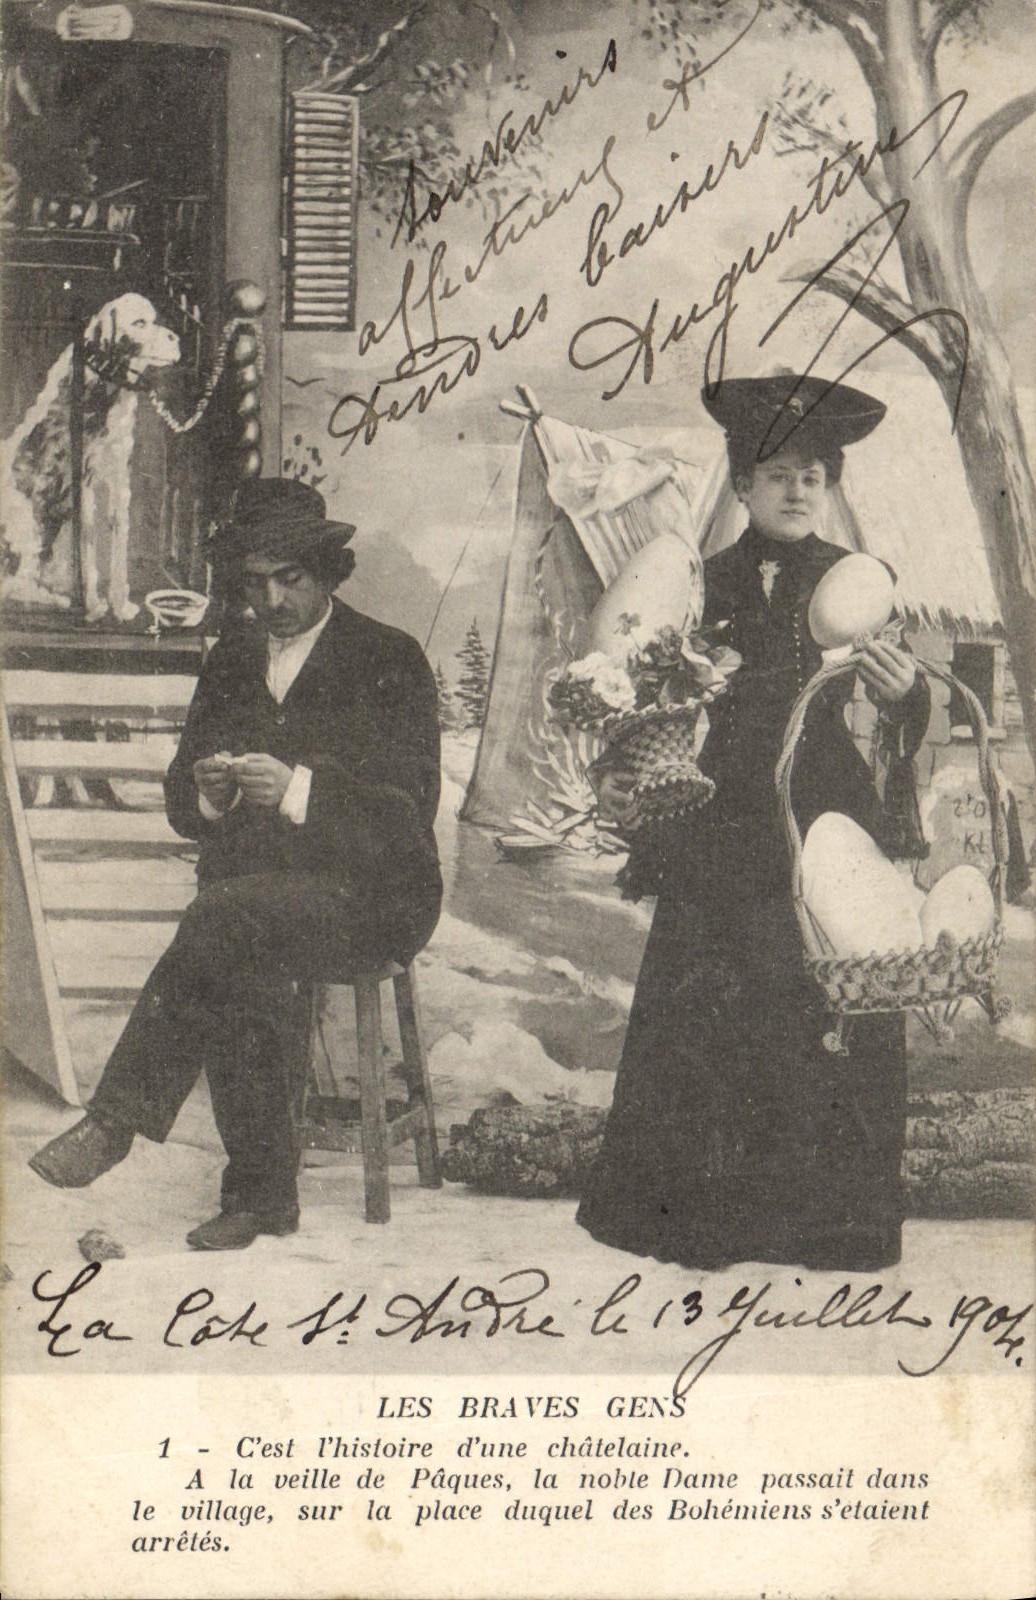 Souvenirs
affectueux et
tendres baisers
Augustine
La Côte St. André le 13 Juillet 1904.
LES BRAVES GENS
1 - C'est l'histoire d'une châtelaine.
A la veille de Pâques, la noble Dame passait dans
le village, sur la place duquel des Bohémiens s'étaient
arrêtés.